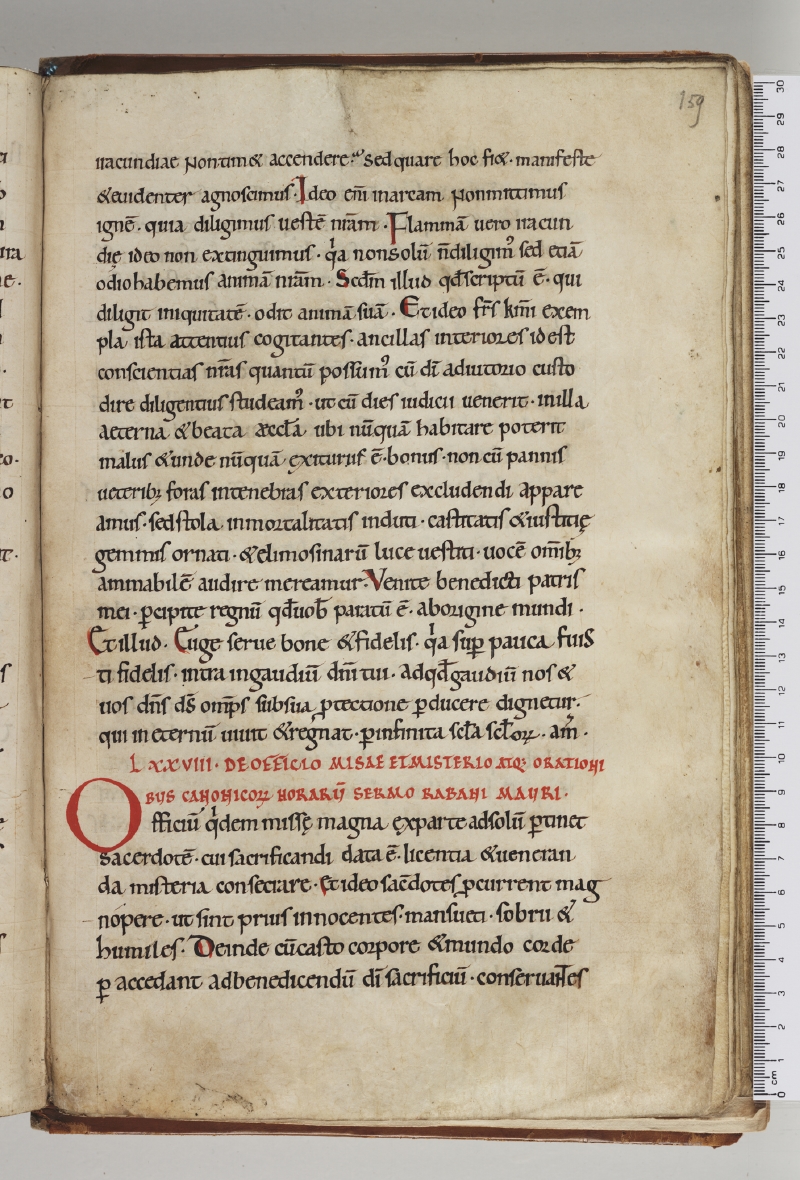 159
iracundiae pontim& accendere. Sed quare hoc fi&. manifeste
&euidenter agnoscimus. Ideo em̄ in aream ponimittimus
ignē. quia diligimus uestē nr̄am. Flammā uero iracun
die̜ ideo non extinguimus. qa non solū n̄ diligim' sed etiā
odio habemus animā nr̄am. Scdm̄ illud qd̄ scriptū ē. qui
diligit iniquitatē. odit animā suā. Et ideo fr̄s km̄i exem
pla ista attentius cogitantes. ancillas interiores id est
conscientias nr̄as quantū possum' cū dī adiutorio custo
dire diligentius studeam'. ut cū dies iudicii uenerit. in illa
aeterna & beata aeccl̄a. ubi nūquā habitare poterit
malus & unde nūquā exiturus ē. bonus. non cū pannis
ueterib; foras in tenebras exteriores excludendi appare
amus. sed stola inmortalitatis induti. castitatis & iustitie̜
gemmis ornati. & elimosinarū luce uestiti. uocē om̄ib;
ammabilē audire mereamur. Venite benedicti patris
mei. ꝑcipite regnū qd̄ uob̄ paratū ē. ab origine mundi.
Et illud. Euge serue bone & fidelis. qa sup̄ pauca fuis
ti fidelis. intra in gaudiū dn̄i tui. Ad qd̄ gaudiū nos &
uos dn̄s ds̄ om̄ps sub sua ꝓtectione ꝑducere dignetur.
qui in eternū uiuit & regnat. ꝑ infinita scl̄a scl̄oꝝ. am̄.
LXXVIII. DE OFFICIO MISAE ET MISTERIO ATQ; ORATIONI
BVS CANONICOꝝ HORARV̄ SERMO RABANI MAVRI.
Officiū qdem misse̜ magna e̜x parte ad solū ꝑtinet
sacerdotē. cui sacrificandi data ē. licentia & ueneran
da misteria consecrare. Et ideo sacēdotes ꝓcurrent mag
nopere. ut sint prius innocentes. mansueti. sobrii &
humiles. Deinde cū casto corpore & mundo corde
ꝑ accedant ad benedicendū dī sacrificiū.